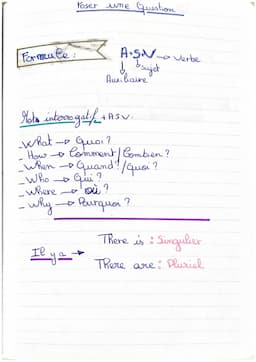 Poser une Question
Formule :
A+S+V → Verbe
Sujet
Auxiliaire
Mots interrogatifs + A S V.
- What → Quoi ?
- How → Comment / Combien ?
- When → Quand ? / Quoi ?
- Who → Qui ?
- Where → où ?
- Why → Pourquoi ?
There is : Singulier
Il y a →
There are : Pluriel